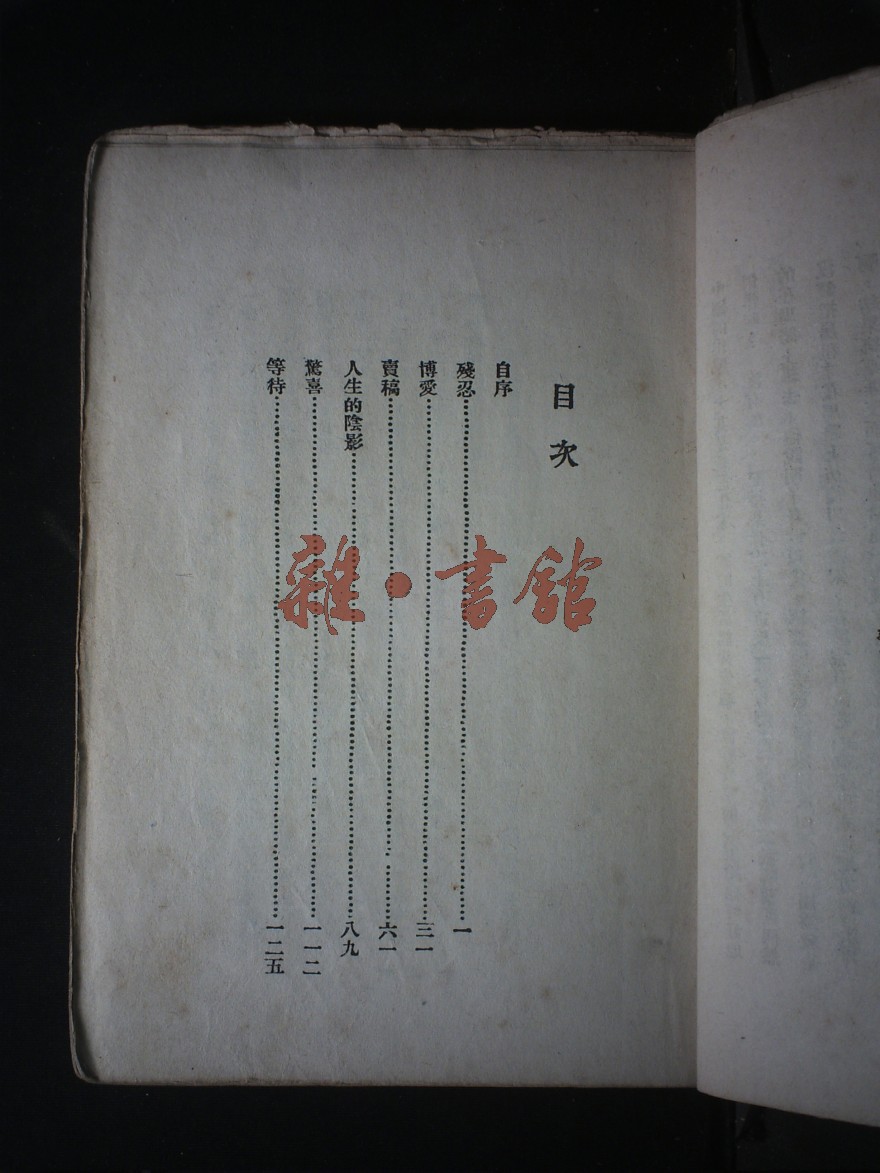 目次
自序
殘忍…一
博愛…三一
賣稿…六一
人生的陰影…八九
驚喜…一一二
等待…一二五
雜·書館